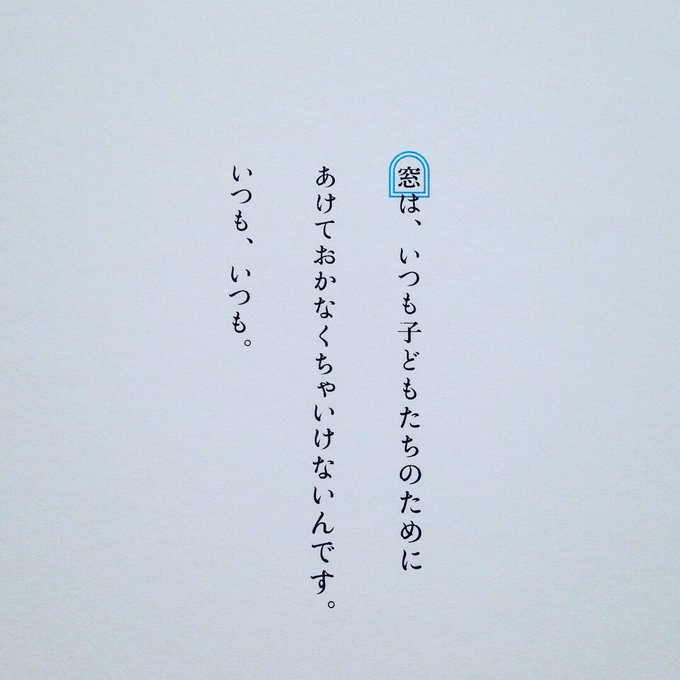 窓は、いつも子どもたちのために
あけておかなくちゃいけないんです。
いつも、いつも。